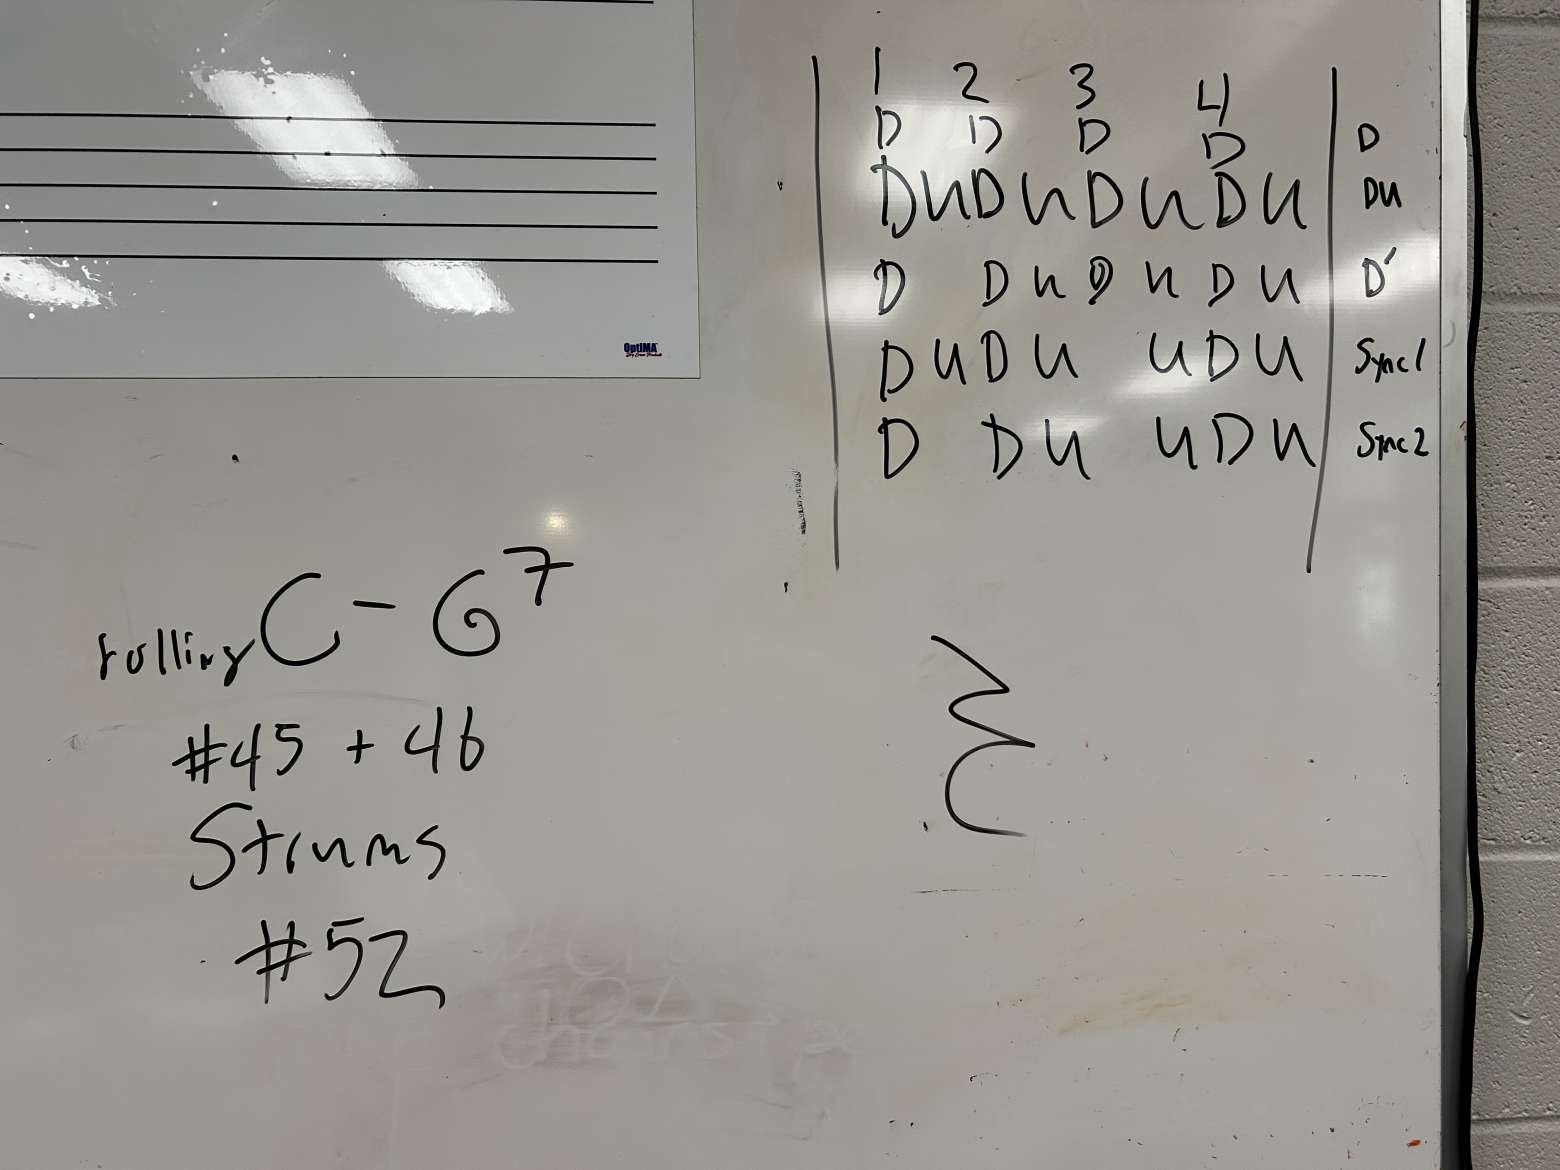 1 2 3 4
D D D D D
D U D U D U D U DU
D D U D U D U D'
D U D U U D U Sync1
D D U U D U Sync2
OptiMA
rolling C - G7
#45 + 46
Strums
#52